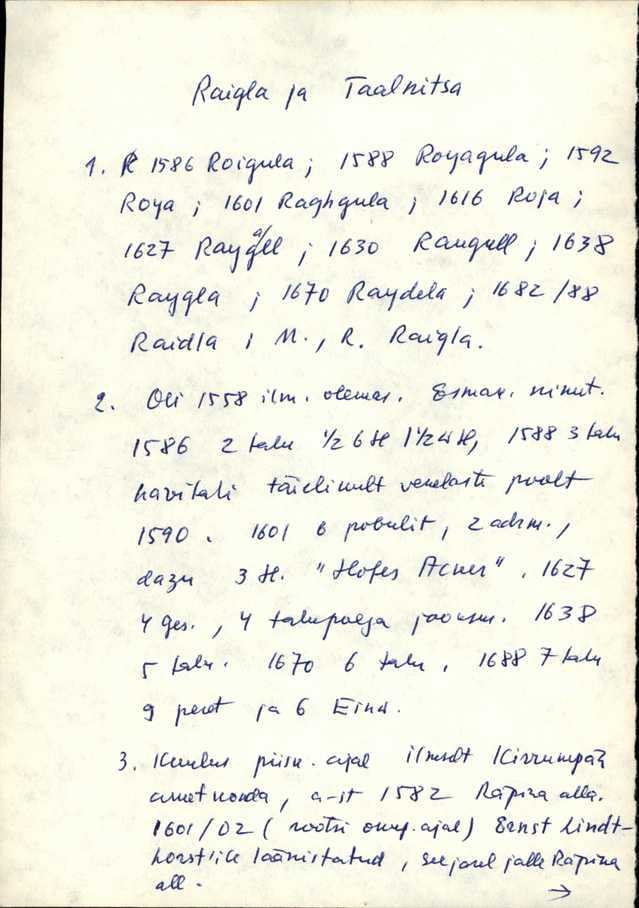 Raigla ja Taalnitsa
1. 1586 Roigula ; 1588 Royagula ; 1592
Roya ; 1601 Raghgula ; 1616 Roja ;
1627 Raygall ; 1630 Raugull ; 1638
Raygla ; 1670 Raydela ; 1682/88
Raidla ; M., R. Raigla.
2. Oli 1558 ilm. olemas. Esmak. nimet.
1586 2 talu 1/2 6 H 1 1/2 H, 1588 3 talu
hävitati täielikult venelaste poolt
1590. 1601 6 pobulit, 2 adrm.,
dazu 3 H. "Hofes Acker". 1627
4 ges., 4 talupoega jooksn. 1638
5 talu. 1670 6 talu, 1688 7 talu
9 peret ja 6 Einw.
3. Kuulus piisk. ajal ilmselt Kirrumpäh
ametkonda, a-st 1582 Räpina alla.
1601/02 (rootsi okup. ajal) Ernst Lindt-
horstile läänistatud, seejärel jälle Räpina
all. →